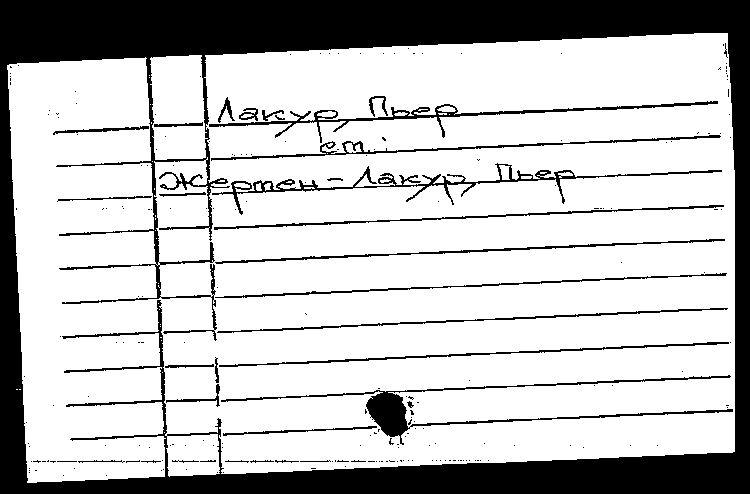 Лакур, Пьер
ст.:
Жертен-Лакур, Пьер